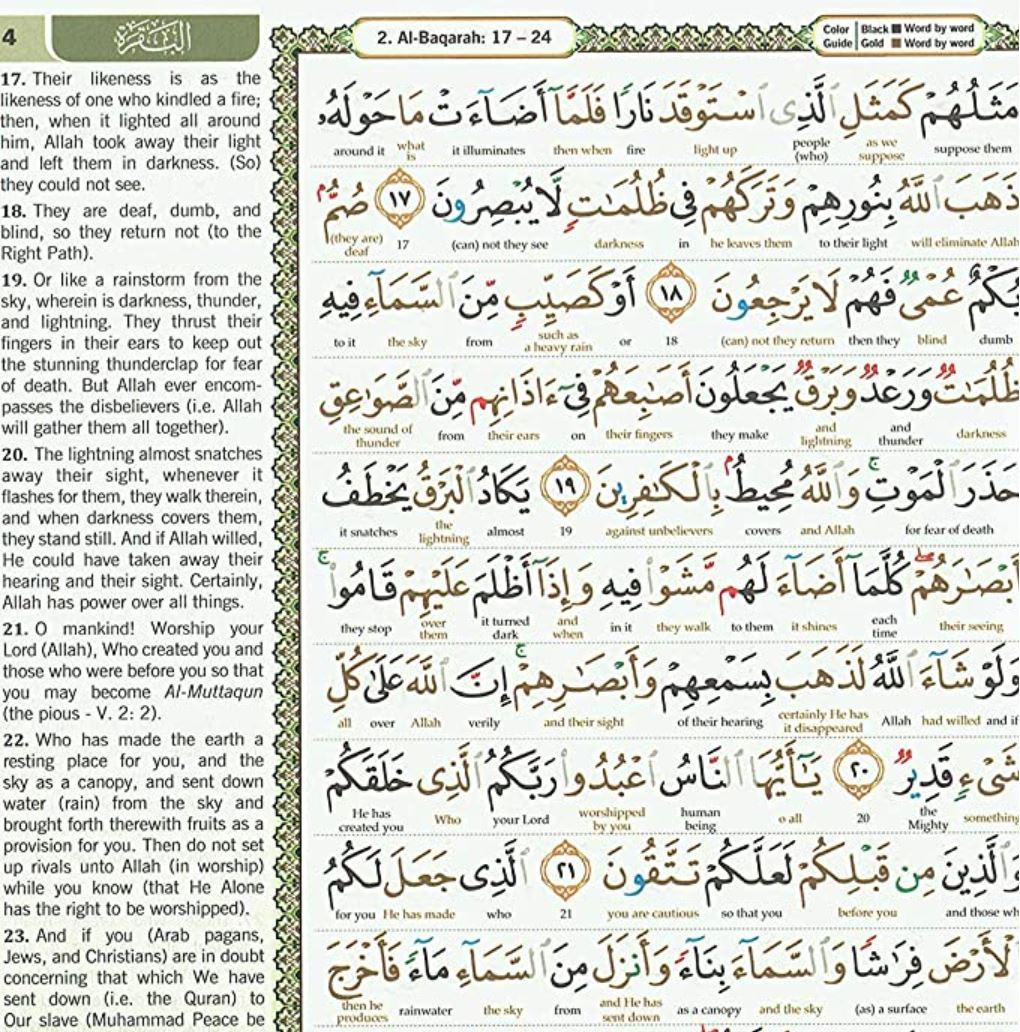 4
البقرة
2. Al-Baqarah: 17 – 24
Color Guide
Black ■ Word by word
Gold ■ Word by word
17. Their likeness is as the
likeness of one who kindled a fire;
then, when it lighted all around
him, Allah took away their light
and left them in darkness. (So)
they could not see.
18. They are deaf, dumb, and
blind, so they return not (to the
Right Path).
19. Or like a rainstorm from the
sky, wherein is darkness, thunder,
and lightning. They thrust their
fingers in their ears to keep out
the stunning thunderclap for fear
of death. But Allah ever encom-
passes the disbelievers (i.e. Allah
will gather them all together).
20. The lightning almost snatches
away their sight, whenever it
flashes for them, they walk therein,
and when darkness covers them,
they stand still. And if Allah willed,
He could have taken away their
hearing and their sight. Certainly,
Allah has power over all things.
21. O mankind! Worship your
Lord (Allah), Who created you and
those who were before you so that
you may become Al-Muttaqun
(the pious - V. 2: 2).
22. Who has made the earth a
resting place for you, and the
sky as a canopy, and sent down
water (rain) from the sky and
brought forth therewith fruits as a
provision for you. Then do not set
up rivals unto Allah (in worship)
while you know (that He Alone
has the right to be worshipped).
23. And if you (Arab pagans,
Jews, and Christians) are in doubt
concerning that which We have
sent down (i.e. the Quran) to
Our slave (Muhammad Peace be
مَثَلُهُمْ كَمَثَلِ ٱلَّذِى ٱسْتَوْقَدَ نَارًا فَلَمَّآ أَضَآءَتْ مَا حَوْلَهُۥ
around it what is it illuminates then when fire light up people (who) as we suppose suppose them
ذَهَبَ ٱللَّهُ بِنُورِهِمْ وَتَرَكَهُمْ فِى ظُلُمَٰتٍ لَّا يُبْصِرُونَ ١٧ صُمٌّۢ
(they are) deaf 17 (can) not they see darkness in he leaves them to their light will eliminate Allah
بُكْمٌ عُمْىٌ فَهُمْ لَا يَرْجِعُونَ ١٨ أَوْ كَصَيِّبٍ مِّنَ ٱلسَّمَآءِ فِيهِ
to it the sky from such as a heavy rain or 18 (can) not they return then they blind dumb
ظُلُمَٰتٌ وَرَعْدٌ وَبَرْقٌ يَجْعَلُونَ أَصَٰبِعَهُمْ فِىٓ ءَاذَانِهِم مِّنَ ٱلصَّوَٰعِقِ
the sound of thunder from their ears on their fingers they make and lightning and thunder darkness
حَذَرَ ٱلْمَوْتِ ۚ وَٱللَّهُ مُحِيطٌۢ بِٱلْكَٰفِرِينَ ١٩ يَكَادُ ٱلْبَرْقُ يَخْطَفُ
it snatches the lightning almost 19 against unbelievers covers and Allah for fear of death
أَبْصَٰرَهُمْ ۖ كُلَّمَآ أَضَآءَ لَهُم مَّشَوْا۟ فِيهِ وَإِذَآ أَظْلَمَ عَلَيْهِمْ قَامُوا۟ ۚ
they stop over them it turned dark and when in it they walk to them it shines each time their seeing
وَلَوْ شَآءَ ٱللَّهُ لَذَهَبَ بِسَمْعِهِمْ وَأَبْصَٰرِهِمْ ۚ إِنَّ ٱللَّهَ عَلَىٰ كُلِّ
all over Allah verily and their sight of their hearing certainly He has it disappeared Allah had willed and if
شَىْءٍ قَدِيرٌ ٢٠ يَٰٓأَيُّهَا ٱلنَّاسُ ٱعْبُدُوا۟ رَبَّكُمُ ٱلَّذِى خَلَقَكُمْ
He has created you Who your Lord worshipped by you human being o all 20 the Mighty something
وَٱلَّذِينَ مِن قَبْلِكُمْ لَعَلَّكُمْ تَتَّقُونَ ٢١ ٱلَّذِى جَعَلَ لَكُمُ
for you He has made who 21 you are cautious so that you before you and those wh
ٱلْأَرْضَ فِرَٰشًا وَٱلسَّمَآءَ بِنَآءً وَأَنزَلَ مِنَ ٱلسَّمَآءِ مَآءً فَأَخْرَجَ
then he produces rainwater the sky from and He has sent down as a canopy and the sky (as) a surface the earth